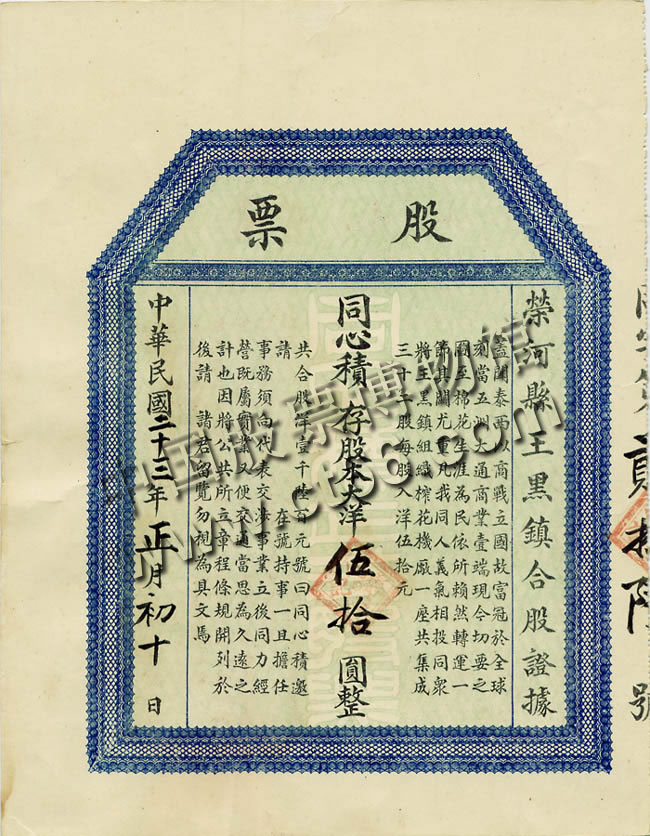 股票
榮河縣王黑鎮合股證據
蓋聞泰西以商戰立國故富冠於全球
刻當五洲大通商業壹端現今切要之
圖至棉花生涯為民依所賴然轉運一
節其關尤重凡我同人義氣相投同衆
將王黑鎮組織榨花機廠一座共集成
三十二股每股入洋伍拾元
同心積 存股本大洋伍拾圓整
共合股洋壹千陸百元號曰同心積邀
請 在號持事一且擔任
事務須向代表交涉事業立後同力經
營既屬實業又便交通當思為久遠之
計也因將公共所立章程條規開列於
後請 諸君留覽勿視為具文焉
中華民國二十三年正月初十日
號
中国股票博物馆
www.ct56.com